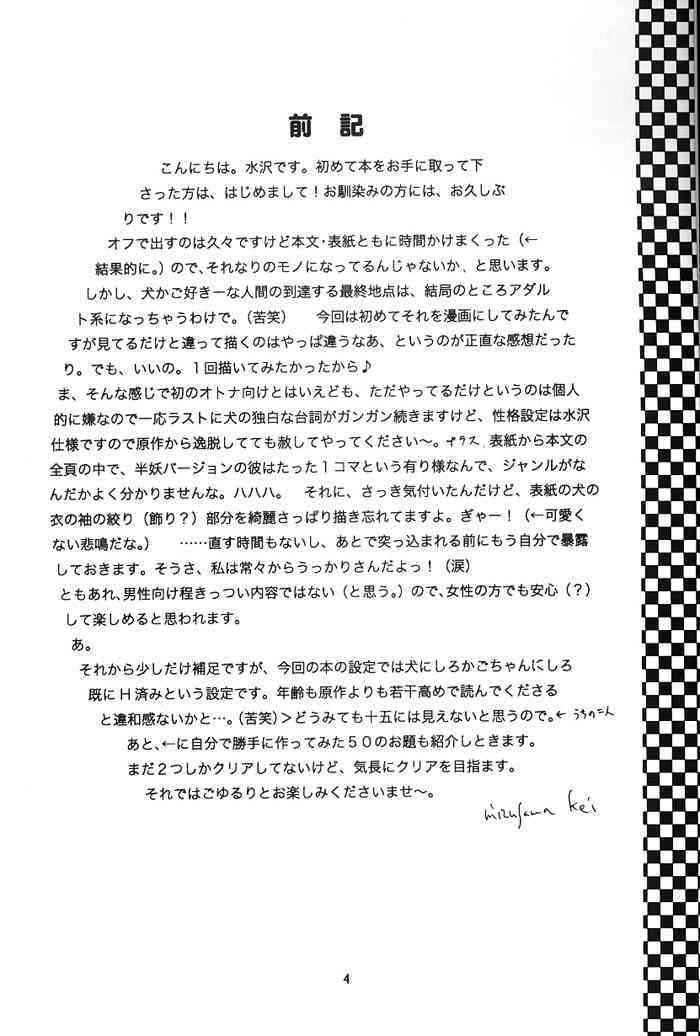 前 記
こんにちは。水沢です。初めて本をお手に取って下
さった方は、はじめまして！お馴染みの方には、お久しぶ
りです！！
オフで出すのは久々ですけど本文・表紙ともに時間かけまくった（←
結果的に。）ので、それなりのモノになってるんじゃないか、と思います。
しかし、犬かご好きーな人間の到達する最終地点は、結局のところアダル
ト系になっちゃうわけで。（苦笑）　今回は初めてそれを漫画にしてみたんで
すが見てるだけと違って描くのはやっぱ違うなあ、というのが正直な感想だった
り。でも、いいの。１回描いてみたかったから♪
ま、そんな感じで初のオトナ向けとはいえども、ただやってるだけというのは個人
的に嫌なので一応ラストに犬の独白な台詞がガンガン続きますけど、性格設定は水沢
仕様ですので原作から逸脱してても赦してやってください〜。プラス、表紙から本文の
全頁の中で、半妖バージョンの彼はたった１コマという有り様なんで、ジャンルがな
んだかよく分かりませんな。ハハハ。　それに、さっき気付いたんだけど、表紙の犬の
衣の袖の絞り（飾り？）部分を綺麗さっぱり描き忘れてますよ。ぎゃー！（←可愛く
ない悲鳴だな。）　……直す時間もないし、あとで突っ込まれる前にもう自分で暴露
しておきます。そうさ、私は常々からうっかりさんだよっ！（涙）
ともあれ、男性向け程きっつい内容ではない（と思う。）ので、女性の方でも安心（？）
して楽しめると思われます。
あ。
それから少しだけ補足ですが、今回の本の設定では犬にしろかごちゃんにしろ
既にＨ済みという設定です。年齢も原作よりも若干高めで読んでくださる
と違和感ないかと…。（苦笑）＞どうみても十五には見えないと思うので。← うちの二人
あと、←に自分で勝手に作ってみた５０のお題も紹介しときます。
まだ２つしかクリアしてないけど、気長にクリアを目指ます。
それではごゆるりとお楽しみくださいませ〜。
mizusawa kei
4